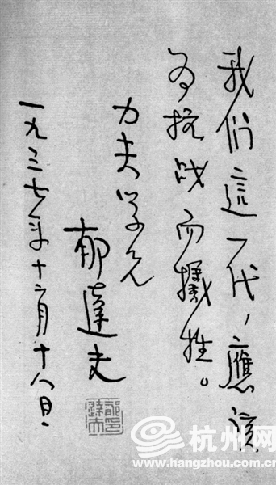 我们這一代，應該
为抗战而犧牲。
力夫学兄
郁達夫
一九三七年十二月十八日
杭州网
www.hangzhou.com.cn